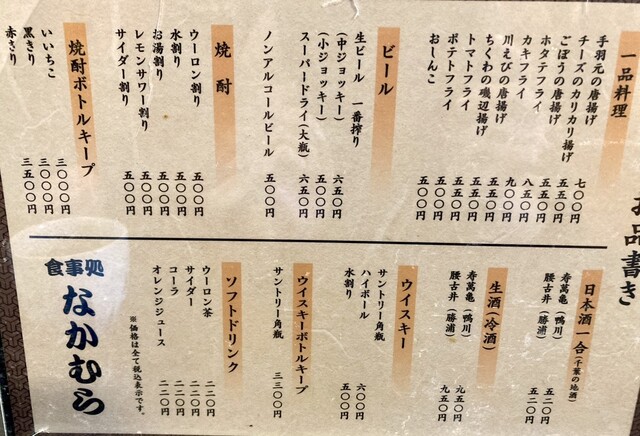 お品書き
一品料理
手羽元の唐揚げ 七〇〇円
チーズのカリカリ揚げ 五五〇円
ごぼうの唐揚げ 五五〇円
ホタテフライ 八五〇円
カキフライ 九〇〇円
川えびの唐揚げ 五五〇円
ちくわの磯辺揚げ 五五〇円
トマトフライ 五五〇円
ポテトフライ 五五〇円
おしんこ 五五〇円
ビール
生ビール 一番搾り
(中ジョッキー) 六五〇円
(小ジョッキー) 五〇〇円
スーパードライ(大瓶) 六五〇円
ノンアルコールビール 五〇〇円
焼酎
ウーロン割り 五〇〇円
水割り 五〇〇円
お湯割り 五〇〇円
レモンサワー割り 五〇〇円
サイダー割り 五〇〇円
焼酎ボトルキープ
いいちこ 三〇〇〇円
黒きり 三〇〇〇円
赤きり 三五〇〇円
日本酒一合(千葉の地酒)
寿萬亀(鴨川) 五二〇円
腰古井(勝浦) 五二〇円
生酒(冷酒)
寿萬亀(鴨川) 九五〇円
腰古井(勝浦) 九五〇円
ウイスキー
サントリー角瓶
ハイボール 六〇〇円
水割り 五〇〇円
ウイスキーボトルキープ
サントリー角瓶 三三〇〇円
ソフトドリンク
ウーロン茶 二二〇円
サイダー 二二〇円
コーラ 二二〇円
オレンジジュース 二二〇円
※価格は全て税込表示です。
食事処
なかむら